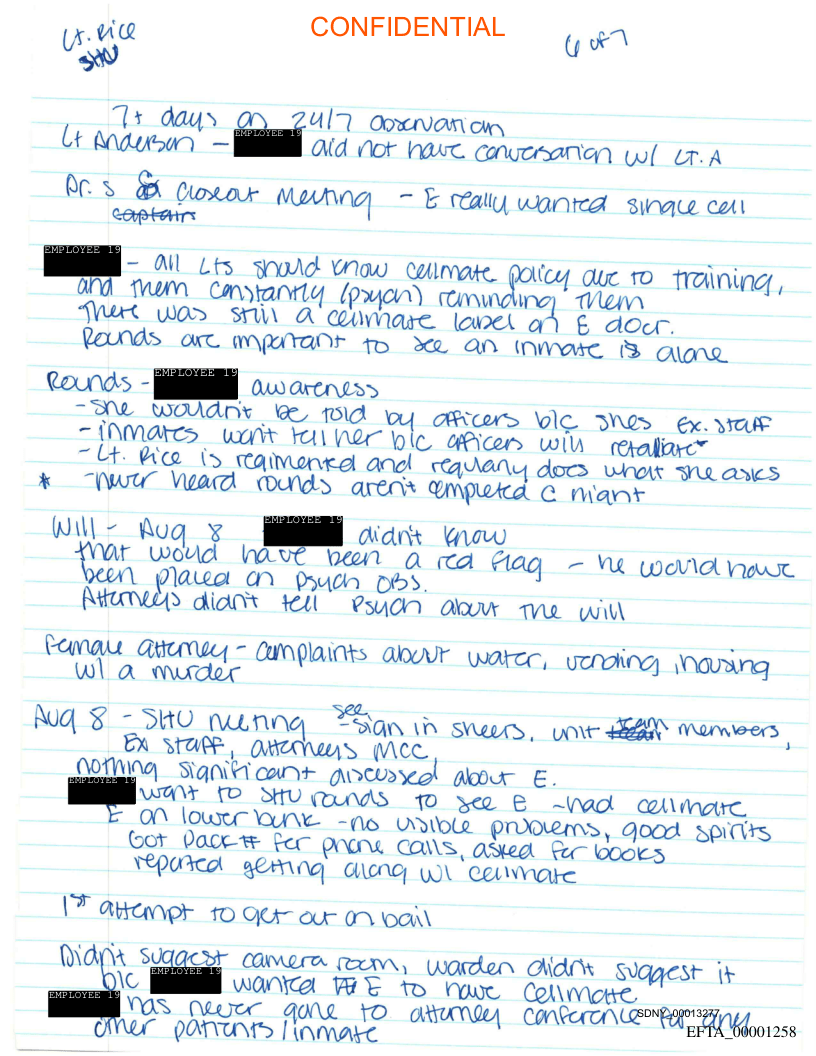 CONFIDENTIAL
Lt. Rice
SHU
6 of 7
7+ days on 24/7 observation
Lt Anderson - EMPLOYEE 19 did not have conversation w/ LT. A
Dr. S closeout meeting - E really wanted single cell
captain
EMPLOYEE 19 - all Lts should know cellmate policy due to training,
and them constantly (psych) reminding them
There was still a cellmate label on E door.
Rounds are important to see an inmate is alone
Rounds - EMPLOYEE 19 awareness
- she wouldn't be told by officers b/c shes Ex. staff
- inmates won't tell her b/c officers will retaliate
- Lt. Rice is regimented and regularly does what she asks
* - never heard rounds aren't completed @ night
Will - Aug 8 EMPLOYEE 19 didn't know
that would have been a red flag - he would have
been placed on psych OBS.
Attorneys didn't tell Psych about the will
Female attorney - complaints about water, vending, housing
w/ a murder
Aug 8 - SHU meeting - see sign in sheets, unit team members,
Ex staff, attorneys MCC
nothing significant discussed about E.
EMPLOYEE 19 went to SHU rounds to see E - had cellmate
E on lower bunk - no visible problems, good spirits
Got Pack # for phone calls, asked for books
reported getting along w/ cellmate
1st attempt to get out on bail
Didn't suggest camera room, warden didn't suggest it
b/c EMPLOYEE 19 wanted E to have cellmate
EMPLOYEE 19 has never gone to attorney conference for any
other patients/inmate
SDNY_00013277
EFTA_00001258